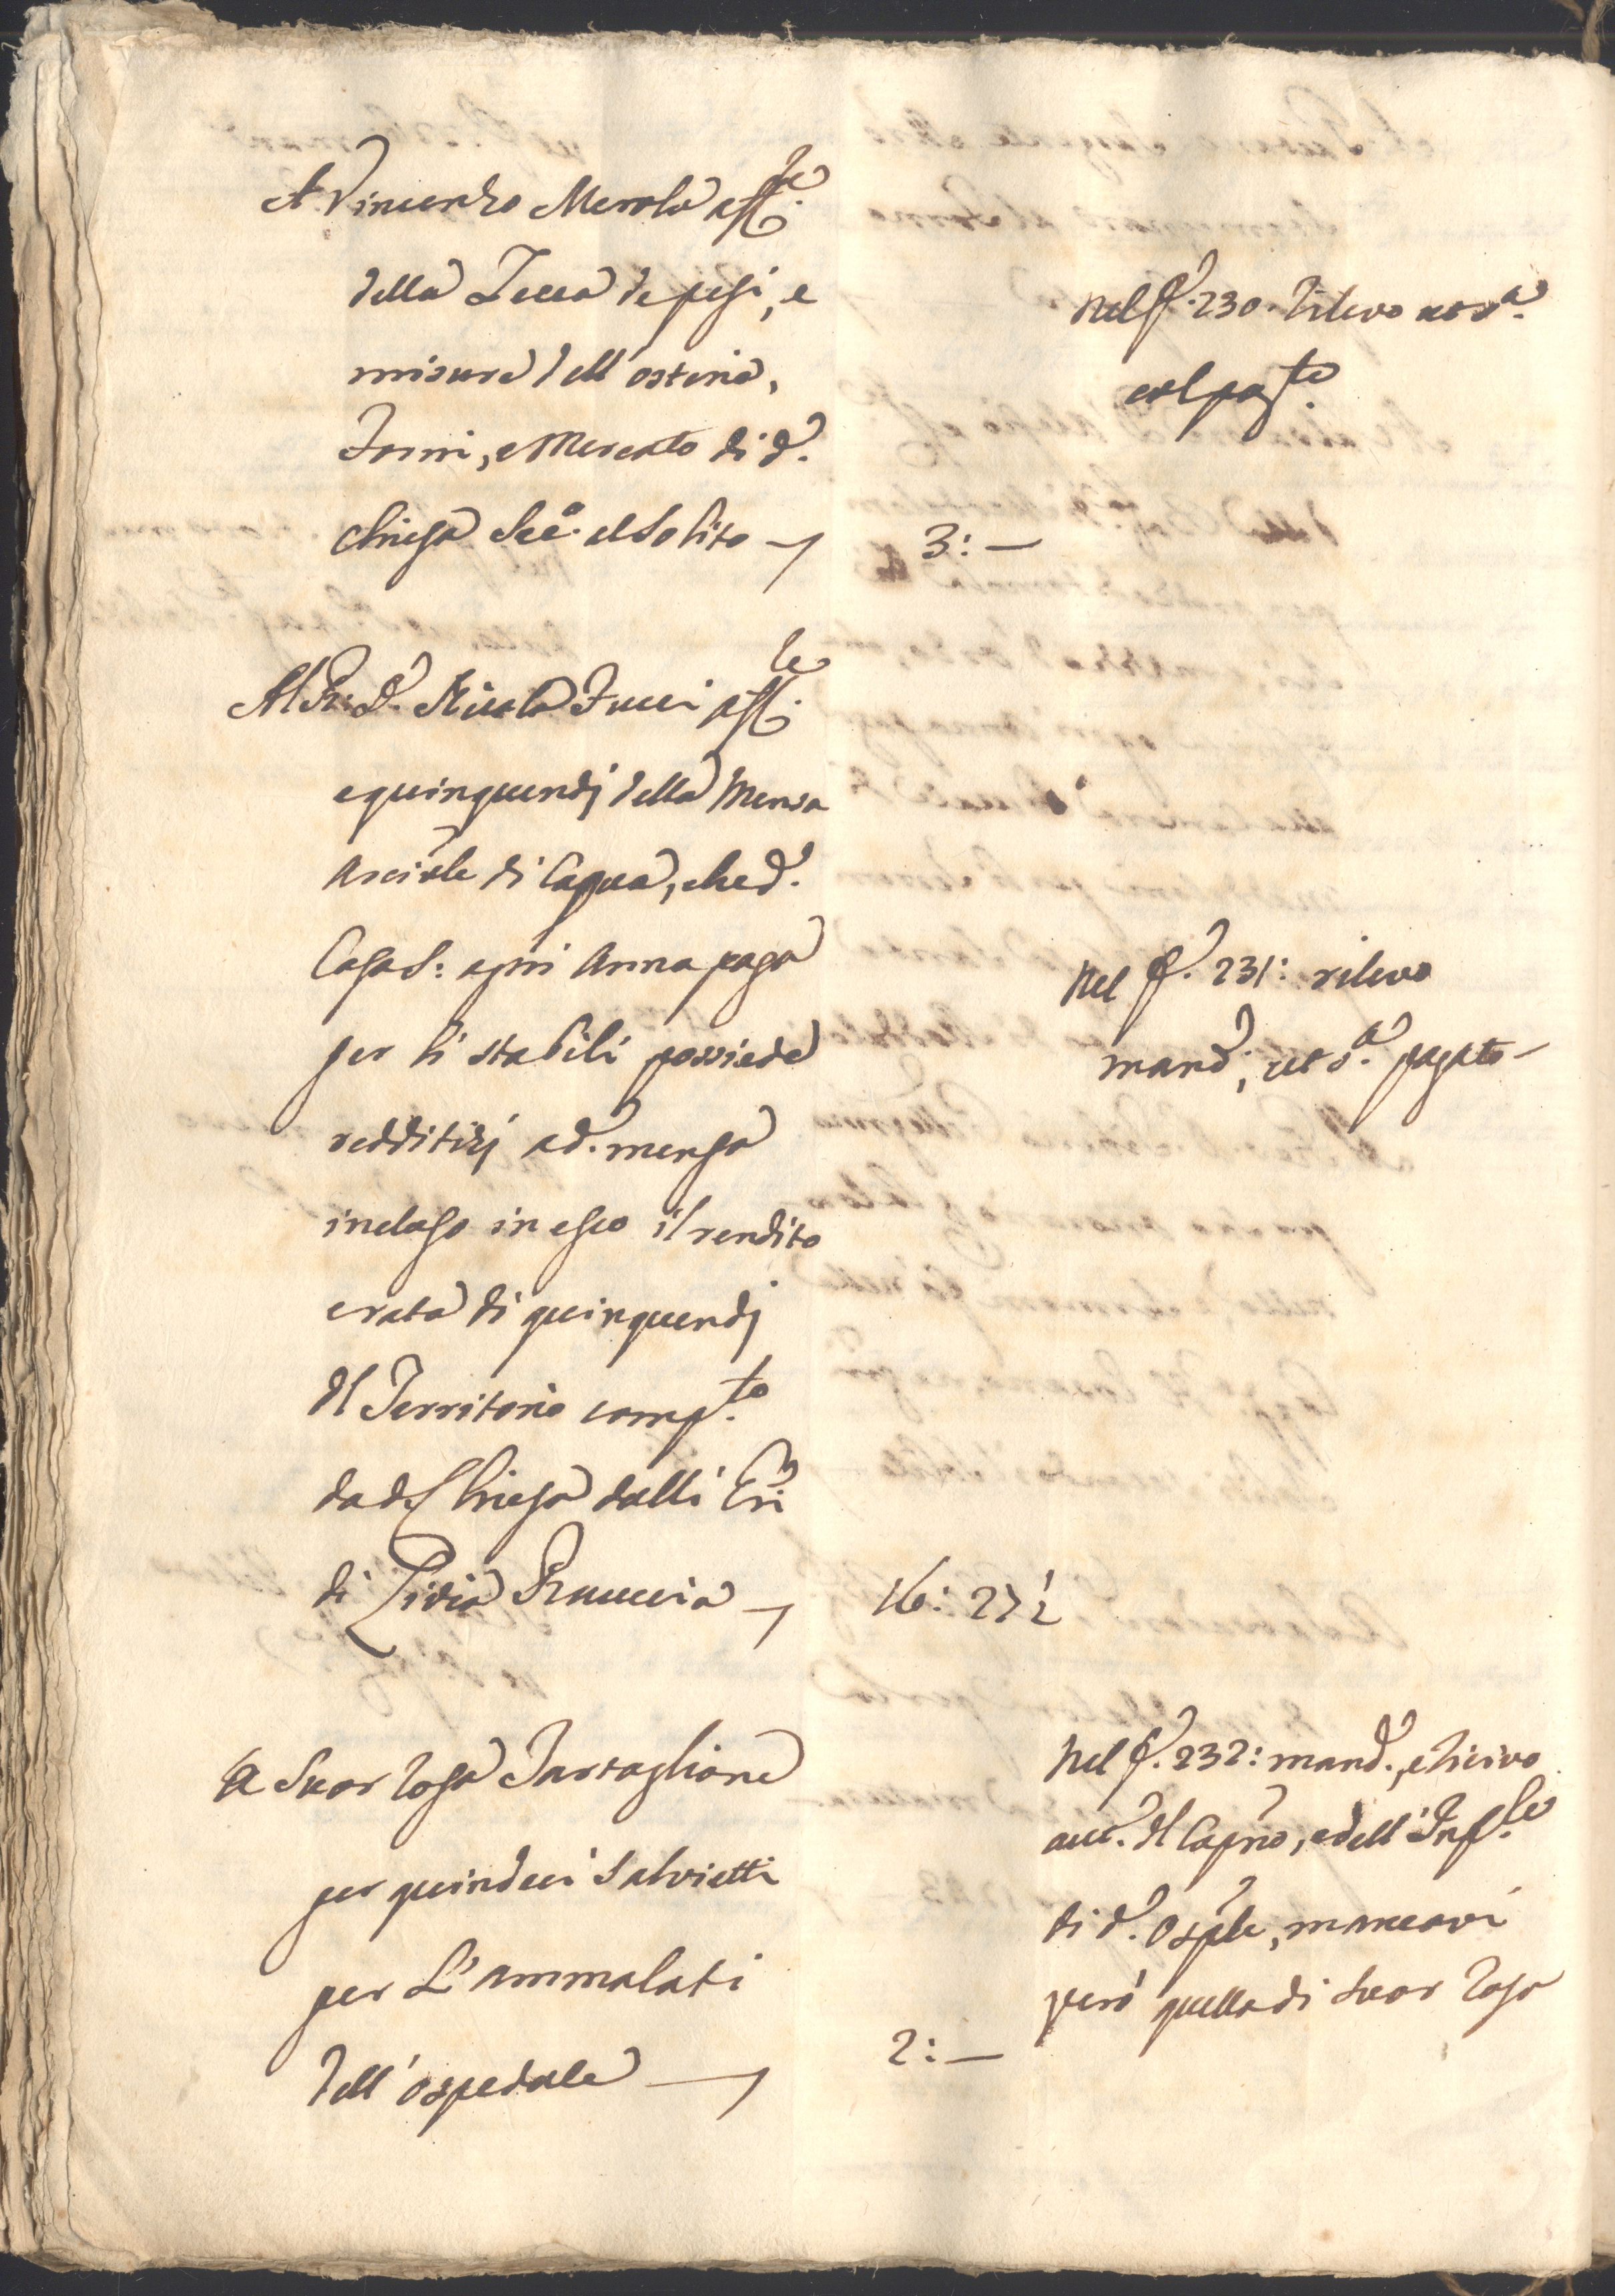 A Vincenzo Merola aff.re
della Zecca de pesi, e
misure dell'osteria,
Forni, e Mercato di d.
Chiesa Sec.o el Solito
3: —
Nel f. 230. ricivo ut s.a
col pag.to
Al R: D. Nicola Fucci aff.re
e quinquendj della Mensa
Arcivle di Capua, che d.
Casa S: ogni Anno paga
per li stabili possiede
redditizj a d. mensa
incluso in esso il rendito
e rata di quinquendj
dl Territorio comp.to
da d. Chiesa dalli Eri
di Livia
16: 27 1/2
Nel f. 231: ricivo
mand, ut s.a pagato
A Suor Rosa Tartaglione
per quindeci Salvietti
per L'ammalati
dell'ospedale
2: —
Nel f. 232: mand., e ricivo
acc. dl Capno, e dell'Inf.le
di d. Osple, mancavi
però quella di Suor Rosa